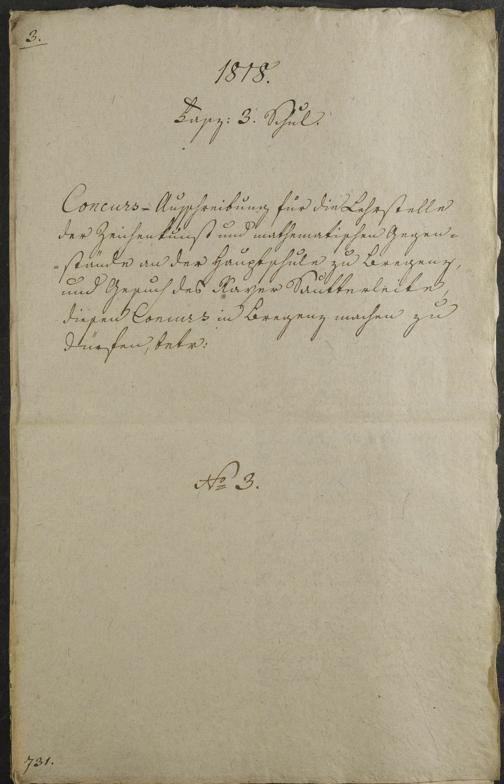 3.
1818.
Fasz: 3. Schul.
Concurs-Ausschreibung für die Lehrstelle
der Zeichenkunst und mathematischen Gegen-
-stände an der Hauptschule zu Bregenz,
und Gesuch des Xaver Sautterleite,
diesen Concurs in Bregenz machen zu
dürfen, betr:
No 3.
731.